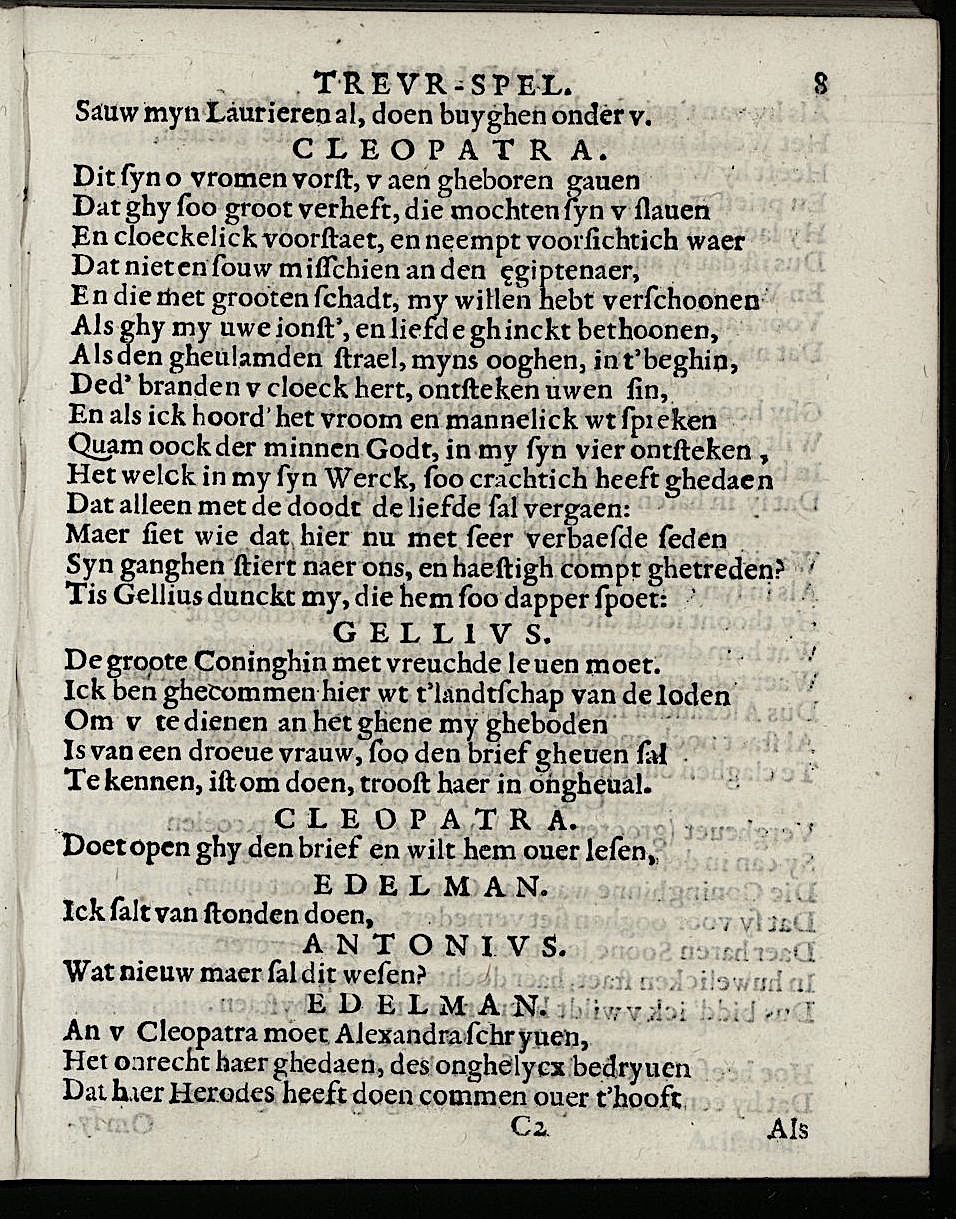 TREVR-SPEL. 8
Sauw myn Laurieren al, doen buyghen onder v.
CLEOPATRA.
Dit ſyn o vromen vorſt, v aen gheboren gauen
Dat ghy ſoo groot verheft, die mochten ſyn v ſlauen
En cloeckelick voorſtaet, en neempt voorſichtich waer
Dat niet en ſouw miſſchien an den ęgiptenaer,
En die met grooten ſchadt, my willen hebt verſchoonen
Als ghy my uwe ionſt', en liefde ghinckt bethoonen,
Als den gheulamden ſtrael, myns ooghen, in t'beghin,
Ded' branden v cloeck hert, ontſteken uwen ſin,
En als ick hoord' het vroom en mannelick wt ſpreken
Quam oock der minnen Godt, in my ſyn vier ontſteken,
Het welck in my ſyn Werck, ſoo crachtich heeft ghedaen
Dat alleen met de doodt de liefde ſal vergaen:
Maer ſiet wie dat hier nu met ſeer verbaeſde ſeden
Syn ganghen ſtiert naer ons, en haeſtigh compt ghetreden?
Tis Gellius dunckt my, die hem ſoo dapper ſpoet:
GELLIVS.
De groote Coninghin met vreuchde leuen moet.
Ick ben ghecommen hier wt t'landtſchap van de Ioden
Om v te dienen an het ghene my gheboden
Is van een droeue vrauw, ſoo den brief gheuen ſal
Te kennen, iſt om doen, trooſt haer in ongheual.
CLEOPATRA.
Doet open ghy den brief en wilt hem ouer leſen,
EDELMAN.
Ick ſalt van ſtonden doen,
ANTONIVS.
Wat nieuw maer ſal dit weſen?
EDELMAN.
An v Cleopatra moet Alexandra ſchryuen,
Het onrecht haer ghedaen, des onghelycx bedryuen
Dat haer Herodes heeft doen commen ouer t'hooft
C2 Als